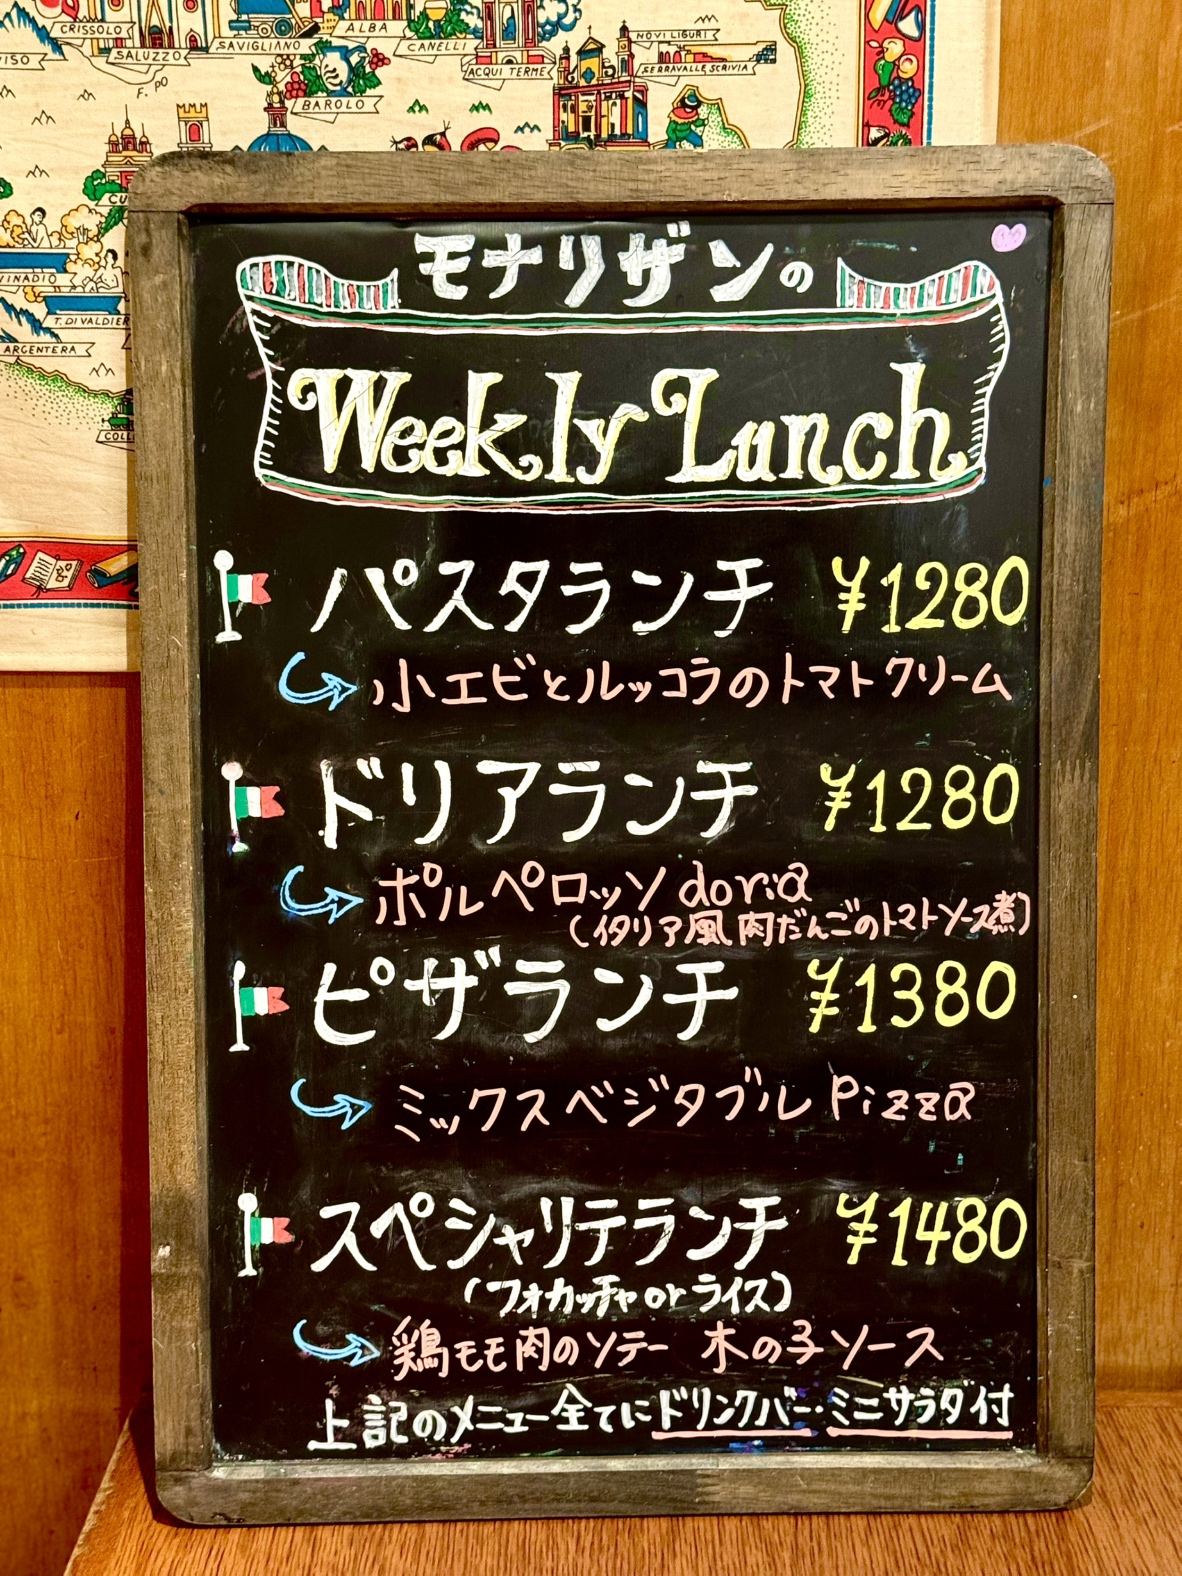 CRISSOLO
SALUZZO
SAVIGLIANO
ALBA
CANELLI
ACQUI TERME
NOVI LIGURI
SERRAVALLE SCRIVIA
F. PO
BAROLO
VINADIO
T. DI VALDIER
ARGENTERA
モナリザンの
Weekly Lunch
パスタランチ ¥1280
小エビとルッコラのトマトクリーム
ドリアランチ ¥1280
ポルペロッソ doria
(イタリア風肉だんごのトマトソース煮)
ピザランチ ¥1380
ミックスベジタブル Pizza
スペシャリテランチ ¥1480
(フォカッチャ or ライス)
鶏モモ肉のソテー 木の子ソース
上記のメニュー全てにドリンクバー・ミニサラダ付